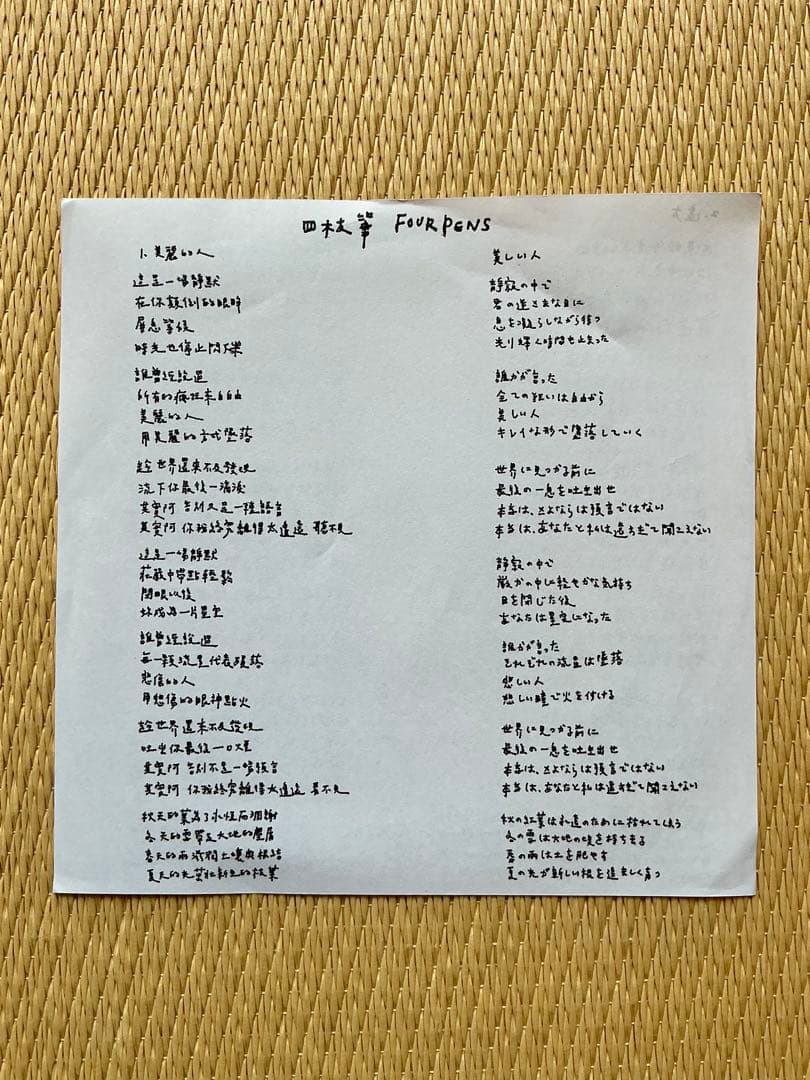 四枝筆 FOUR PENS
1. 美麗的人
這是一場靜默
在你顛倒的眼眸
屏息等候
時光也停止閃爍
誰曾經說過
所有的瘋狂來自自由
美麗的人
用美麗的方式墮落
趁世界還來不及發現
流下你最後一滴淚
其實阿 告別又是一種語言
其實阿 你我終究離得太遙遠 聽不見
這是一場靜默
莊嚴中帶點輕鬆
閉眼以後
你成為一片星空
誰曾經說過
每一顆流星代表殞落
悲傷的人
用悲傷的眼神點火
趁世界還來不及發現
吐出你最後一口氣
其實阿 告別不是一場預言
其實阿 你我終究離得太遙遠 看不見
秋天的葉為了永恆而凋謝
冬天的雪帶走大地的塵屑
春天的雨滋潤土壤與根結
夏天的光茁壯新生的枝葉
美しい人
静寂の中で
君の逆さまな目に
息を凝らしながら待つ
光り輝く時間も止まった
誰かが言った
全ての狂いは自由から
美しい人
キレイな形で墮落していく
世界に見つかる前に
最後の一息を吐き出せ
本当は、さよならは預言ではない
本当は、あなたと私は遠すぎて聞こえない
静寂の中で
厳かの中に軽やかな気持ち
目を閉じた後
あなたは星空になった
誰かが言った
それぞれの流星は墜落
悲しい人
悲しい瞳で火を付ける
世界に見つかる前に
最後の一息を吐き出せ
本当は、さよならは預言ではない
本当は、あなたと私は遠すぎて聞こえない
秋の紅葉は永遠のために枯れてしまう
冬の雪は大地の埃を持ち去る
春の雨は土を肥やす
夏の光が新しい枝を逞しく育つ